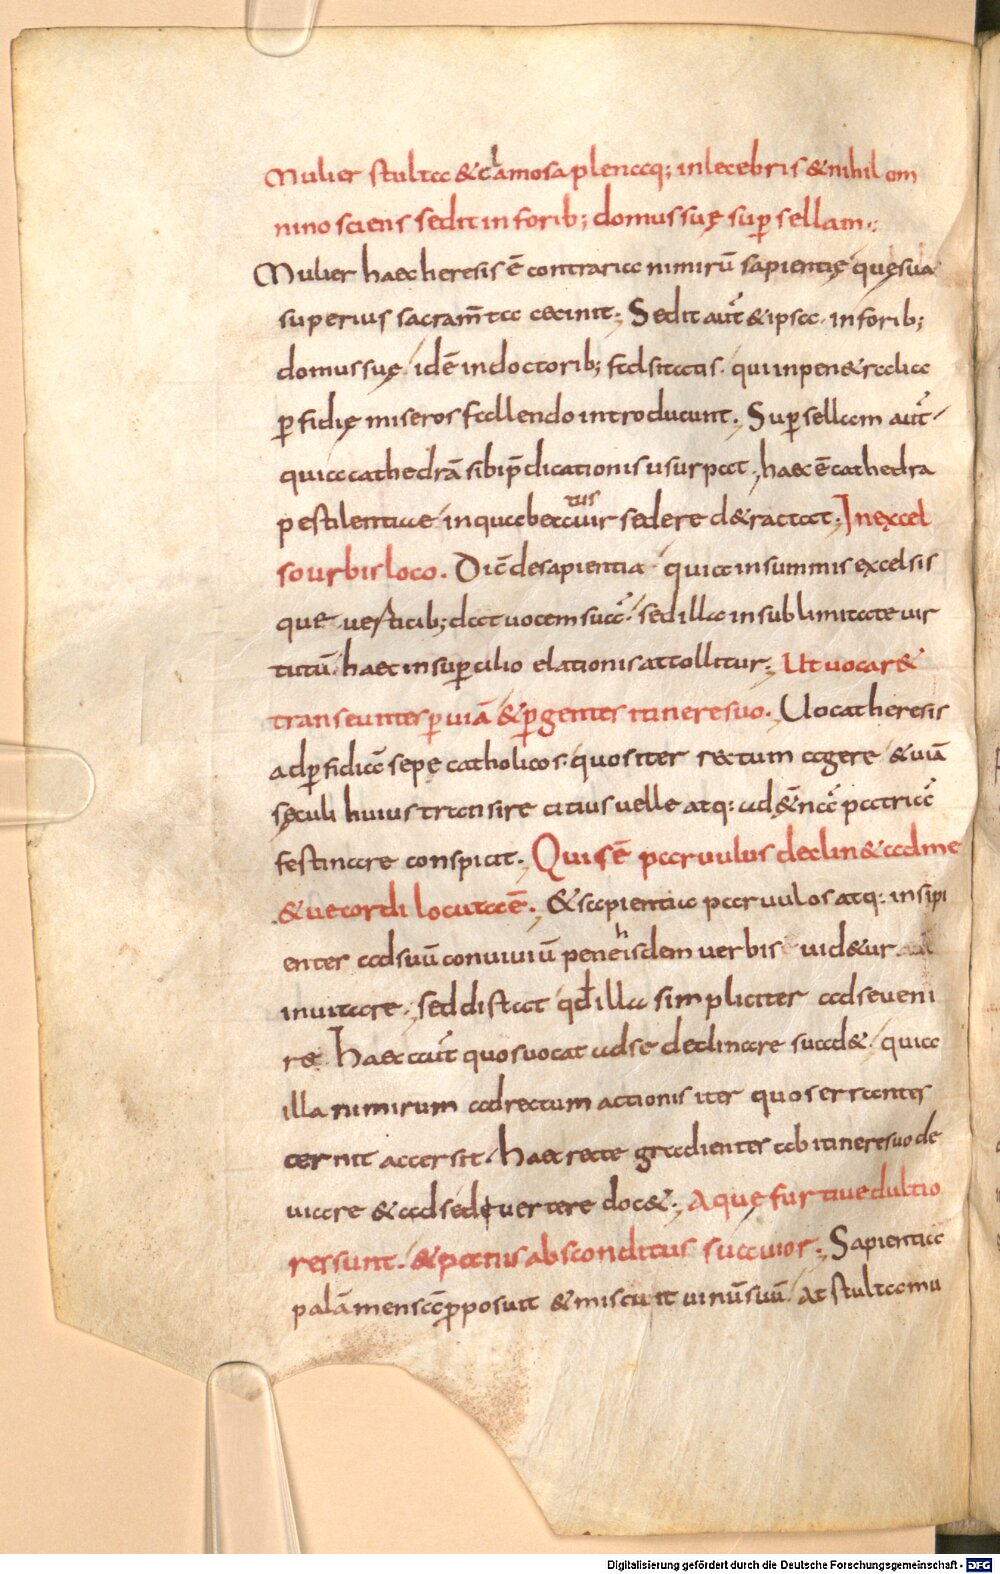 Mulier stulta & clamosa plenaq; inlecebris & nihil om
nino sciens sedit in forib; domus suę sup̱ sellam.;
Mulier haec heresis ē contraria nimirū sapientię quę sua
superius sacram̄ta cecinit; Sedit aut̄ & ipsa in forib;
domus suę idē in doctorib; falsitatis. qui in penetralia
p̱fidię miseros fallendo introducunt; Sup̱ sellam aut̄
quia cathedrā sibi p̄dicationis usurpat; haec ē cathedra
pestilentiae in qua beatus uir sedere d&ractat; In excel
so urbis loco. Dic̄ de sapientia quia in summis excelsis
quę uerticib; dat uocem suā; sed illa in sublimitate uir
tutū. haec in sup̱cilio elationis attollitur; Ut uocar&
transeuntes p̱ uiā & p̱gentes itinere suo. Uocat heresis
ad p̱fidiā sepę catholicos quos iter rectum agere & uiā
sęculi huius transire citius uelle atq: ad &̄nā patriā
festinare conspicit; Quis ē paruulus declin& ad me
& uecordi locuta ē; & sapientia paruulos atq: insipi
enter ad suū conuiuiū penę hisdem uerbis uid&ur
inuitare; sed distat qđ illa simpliciter ad se ueni
re Haec aut̄ quos uocat ad se declinare suad&. quia
illa nimirum ad rectum actionis iter quos errantes
cernit accersit. haec recte gradientes ab itinere suo de
uiare & ad se deuertere doc&; Aquę furtiuę dultio
res sunt. & panis absconditus suauior; Sapientia
palā mensā p̱posuit & miscuit uinū suū. At stulta mu